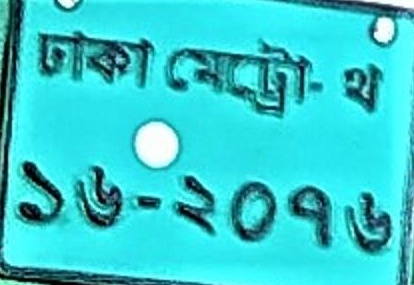 ঢাকা মেট্রো- থ
১৬-২০৭৬